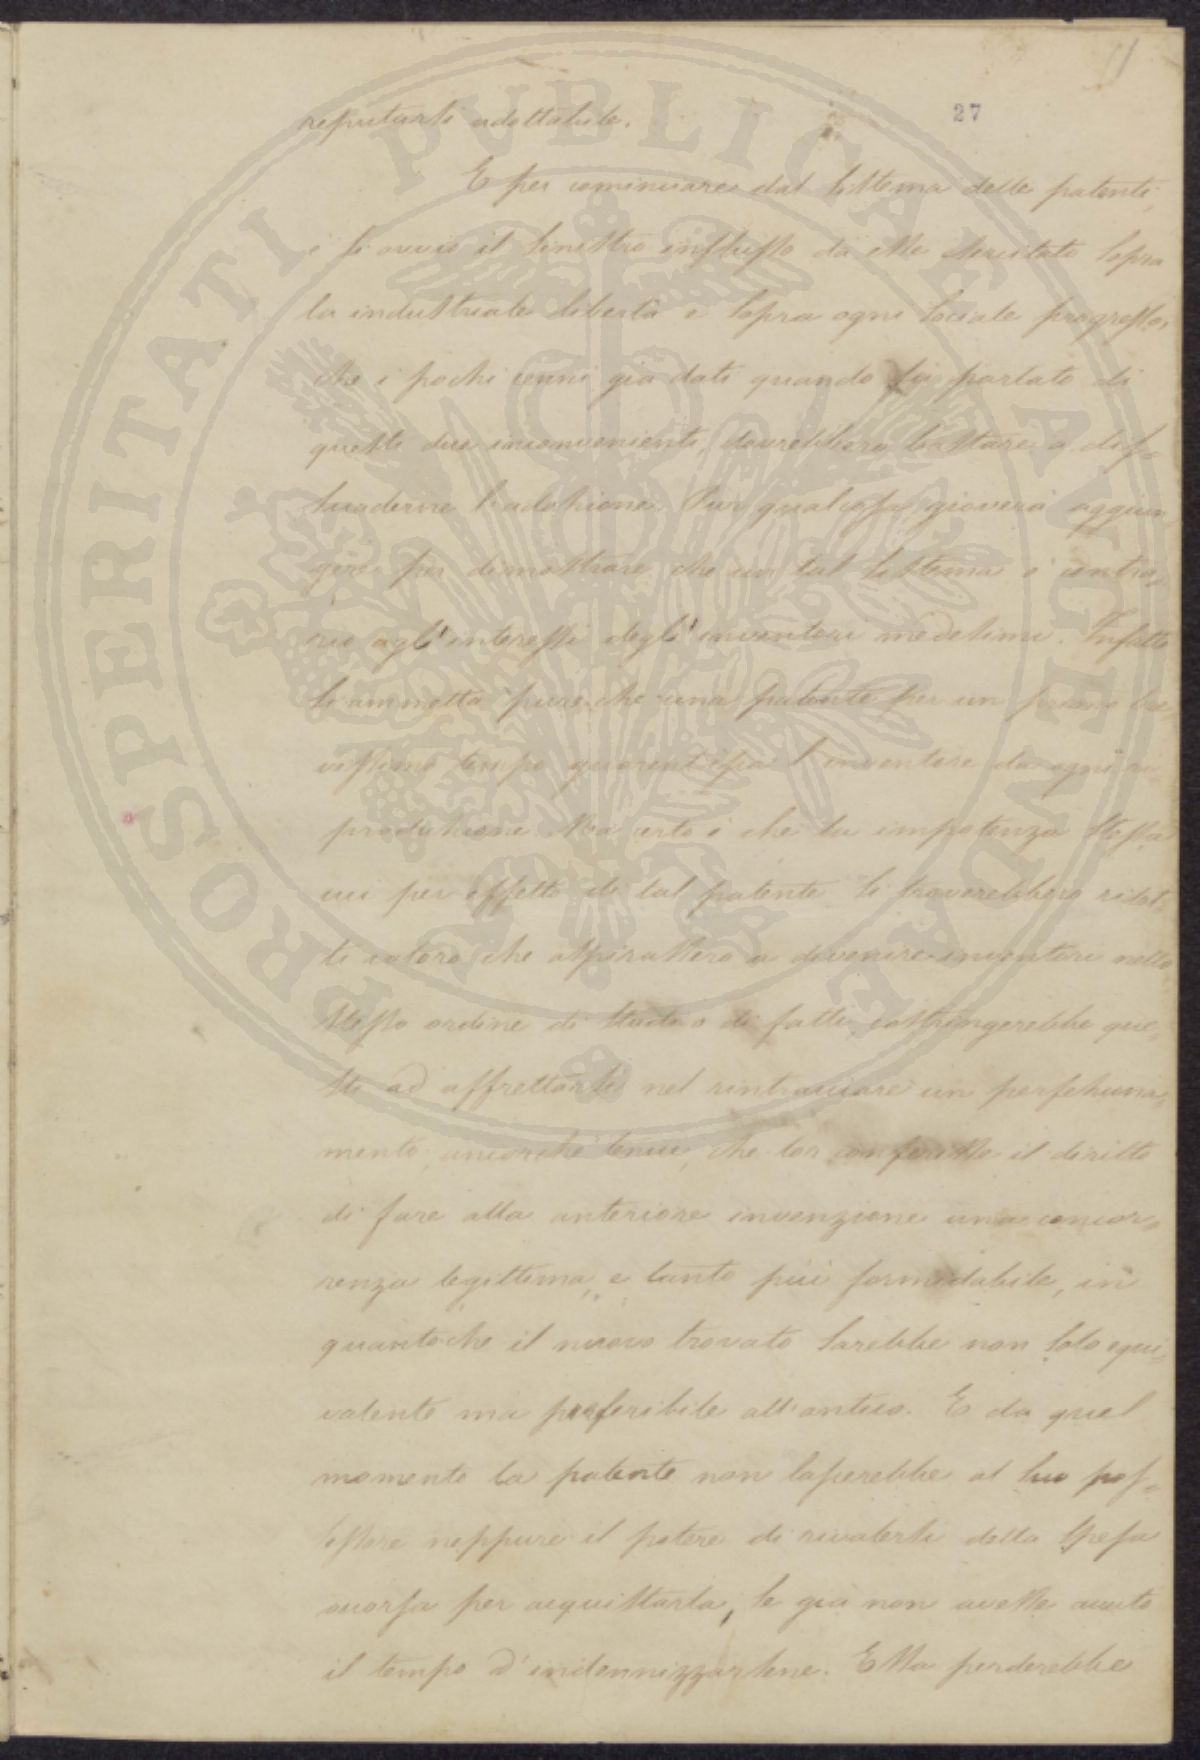 11
27
reputarsi adottabile.
E per cominciare dal sistema delle patenti,
è sì ovvio il sinistro influsso da esse esercitato sopra
la industriale libertà e sopra ogni sociale progresso,
che i pochi cenni già dati quando fu parlato di
questi due inconvenienti, dovrebbero bastare a dis=
suaderne l'adozione. Pur qualcosa gioverà aggiun=
gere per dimostrare che un tal sistema è contra=
rio agl'interessi degl'inventori medesimi. Infatti
si ammetta pure che una patente per un primo bre=
vissimo tempo guarentisca l'inventore da ogni ri=
produzione. Ma certo è che la impotenza stessa
cui per effetto di tal patente si troverebbero ridot=
ti coloro che aspirassero a divenire inventori nello
stesso ordine di studi o di fatti, costringerebbe que=
sti ad affrettarsi nel rintracciare un perfeziona=
mento, ancorché tenue, che lor conferisse il diritto
di fare alla anteriore invenzione una concor=
renza legittima, e tanto più formidabile, in
quantoché il nuovo trovato sarebbe non solo equi=
valente ma preferibile all'antico. E da quel
momento la patente non lascerebbe al suo pos=
sessore neppure il potere di rivalersi della spesa
occorsa per acquistarla, se già non avesse avuto
il tempo d'indennizzarsene. Essa perderebbe
PROSPERITATI PVBLICAE AVGENDAE